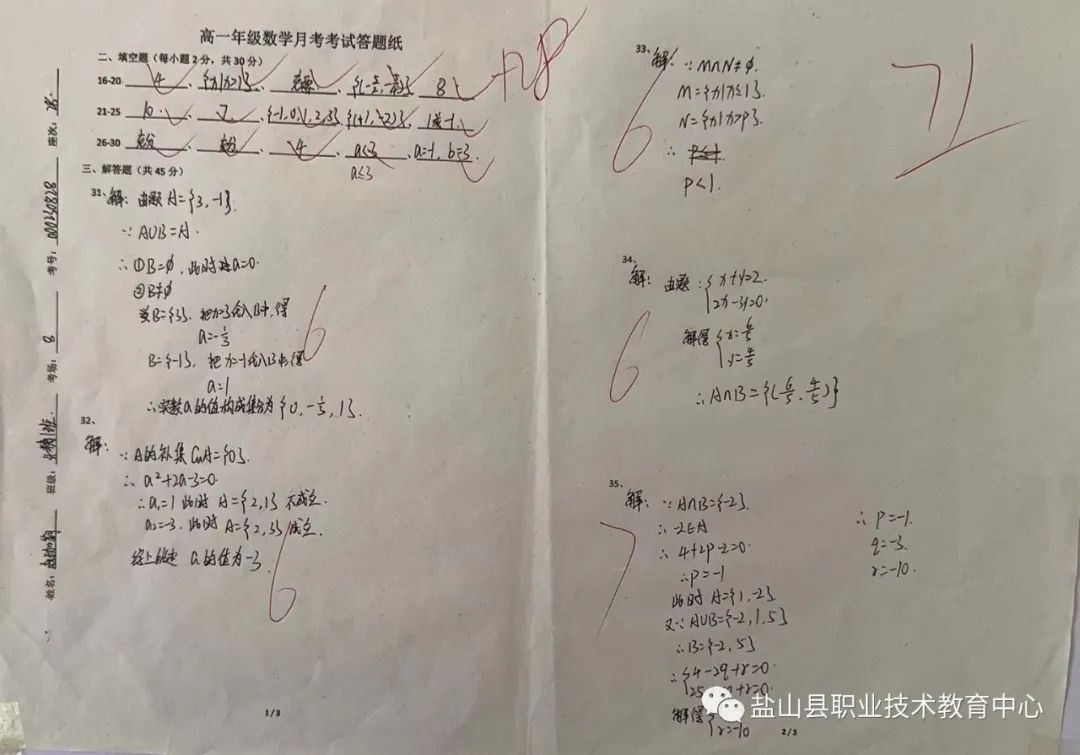 高一年级数学月考考试答题纸
二、填空题（每小题2分，共30分）
16-20 4 、 、 、 、 8
+28
21-25 、 、{-1,0,1,2,3}、{(1,-2)}、1或-1
26-30 充分、 、4、a≤3、a=-1,b=3
a≤3
三、解答题（共45分）
31、解：由题A={3,-1}.
∵ A∪B=A.
∴ ①B=∅，此时 a=0.
②B≠∅
当B={3}，把x=3代入B中,得
a=-1/3
B={-1}，把x=-1代入B中,得
a=1
∴实数a的值构成集合为{0,-1/3,1}.
6
32、
解：∵A的补集CuA={0}.
∴ a²+2a-3=0.
∴a₁=1 此时 A={2,1} 不成立.
a₂=-3. 此时 A={2,3} 成立.
综上所述 a的值为-3.
6
座次：28.
考号：
考场：8
班级：
姓名：
1/3
33、解：∵M∩N≠∅.
M={x|x≤1}.
N={x|x>P}.
∴ P≤1.
P<1.
6
71
34、
解：由题：{x+y=2.
2x-3y=0.
解得{x=6/5
y=4/5
∴A∩B={(6/5,4/5)}
6
35、
解：∵A∩B={-2}
∴-2∈A
∴ 4+2P-2=0.
∴P=-1
此时 A={1,-2}.
又∵A∪B={-2,1,5}
∴B={-2,5}
∴{4-2q+r=0.
25 +r=0.
解得{
r=-10
∴ P=-1.
q=-3.
r=-10.
7
盐山县职业技术教育中心
2/3